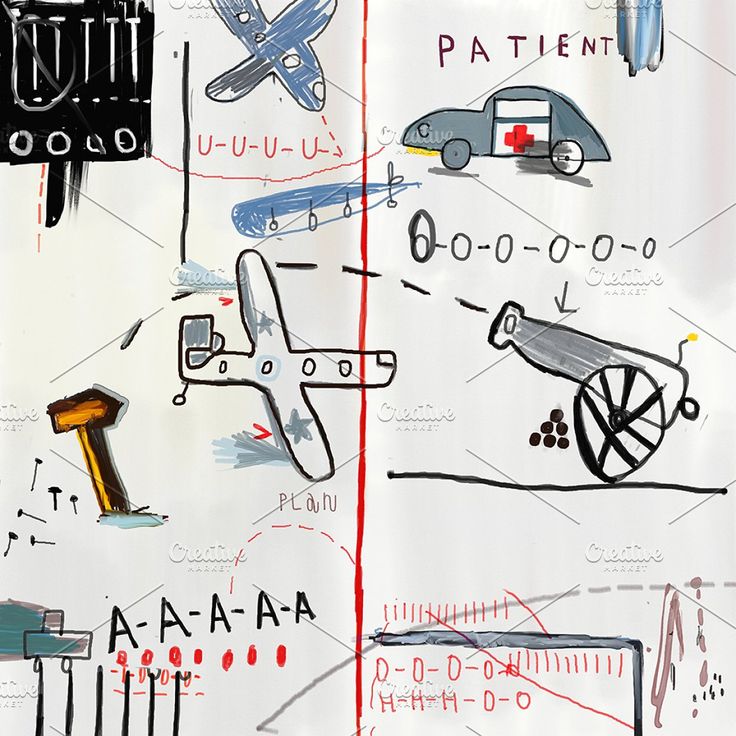 PATIENT
U-U-U-U-
O-O-O-O-O-O
PLAN
A-A-A-A-A
O-O-O-O-O
H-H-H-O-O
Creative
MARKET